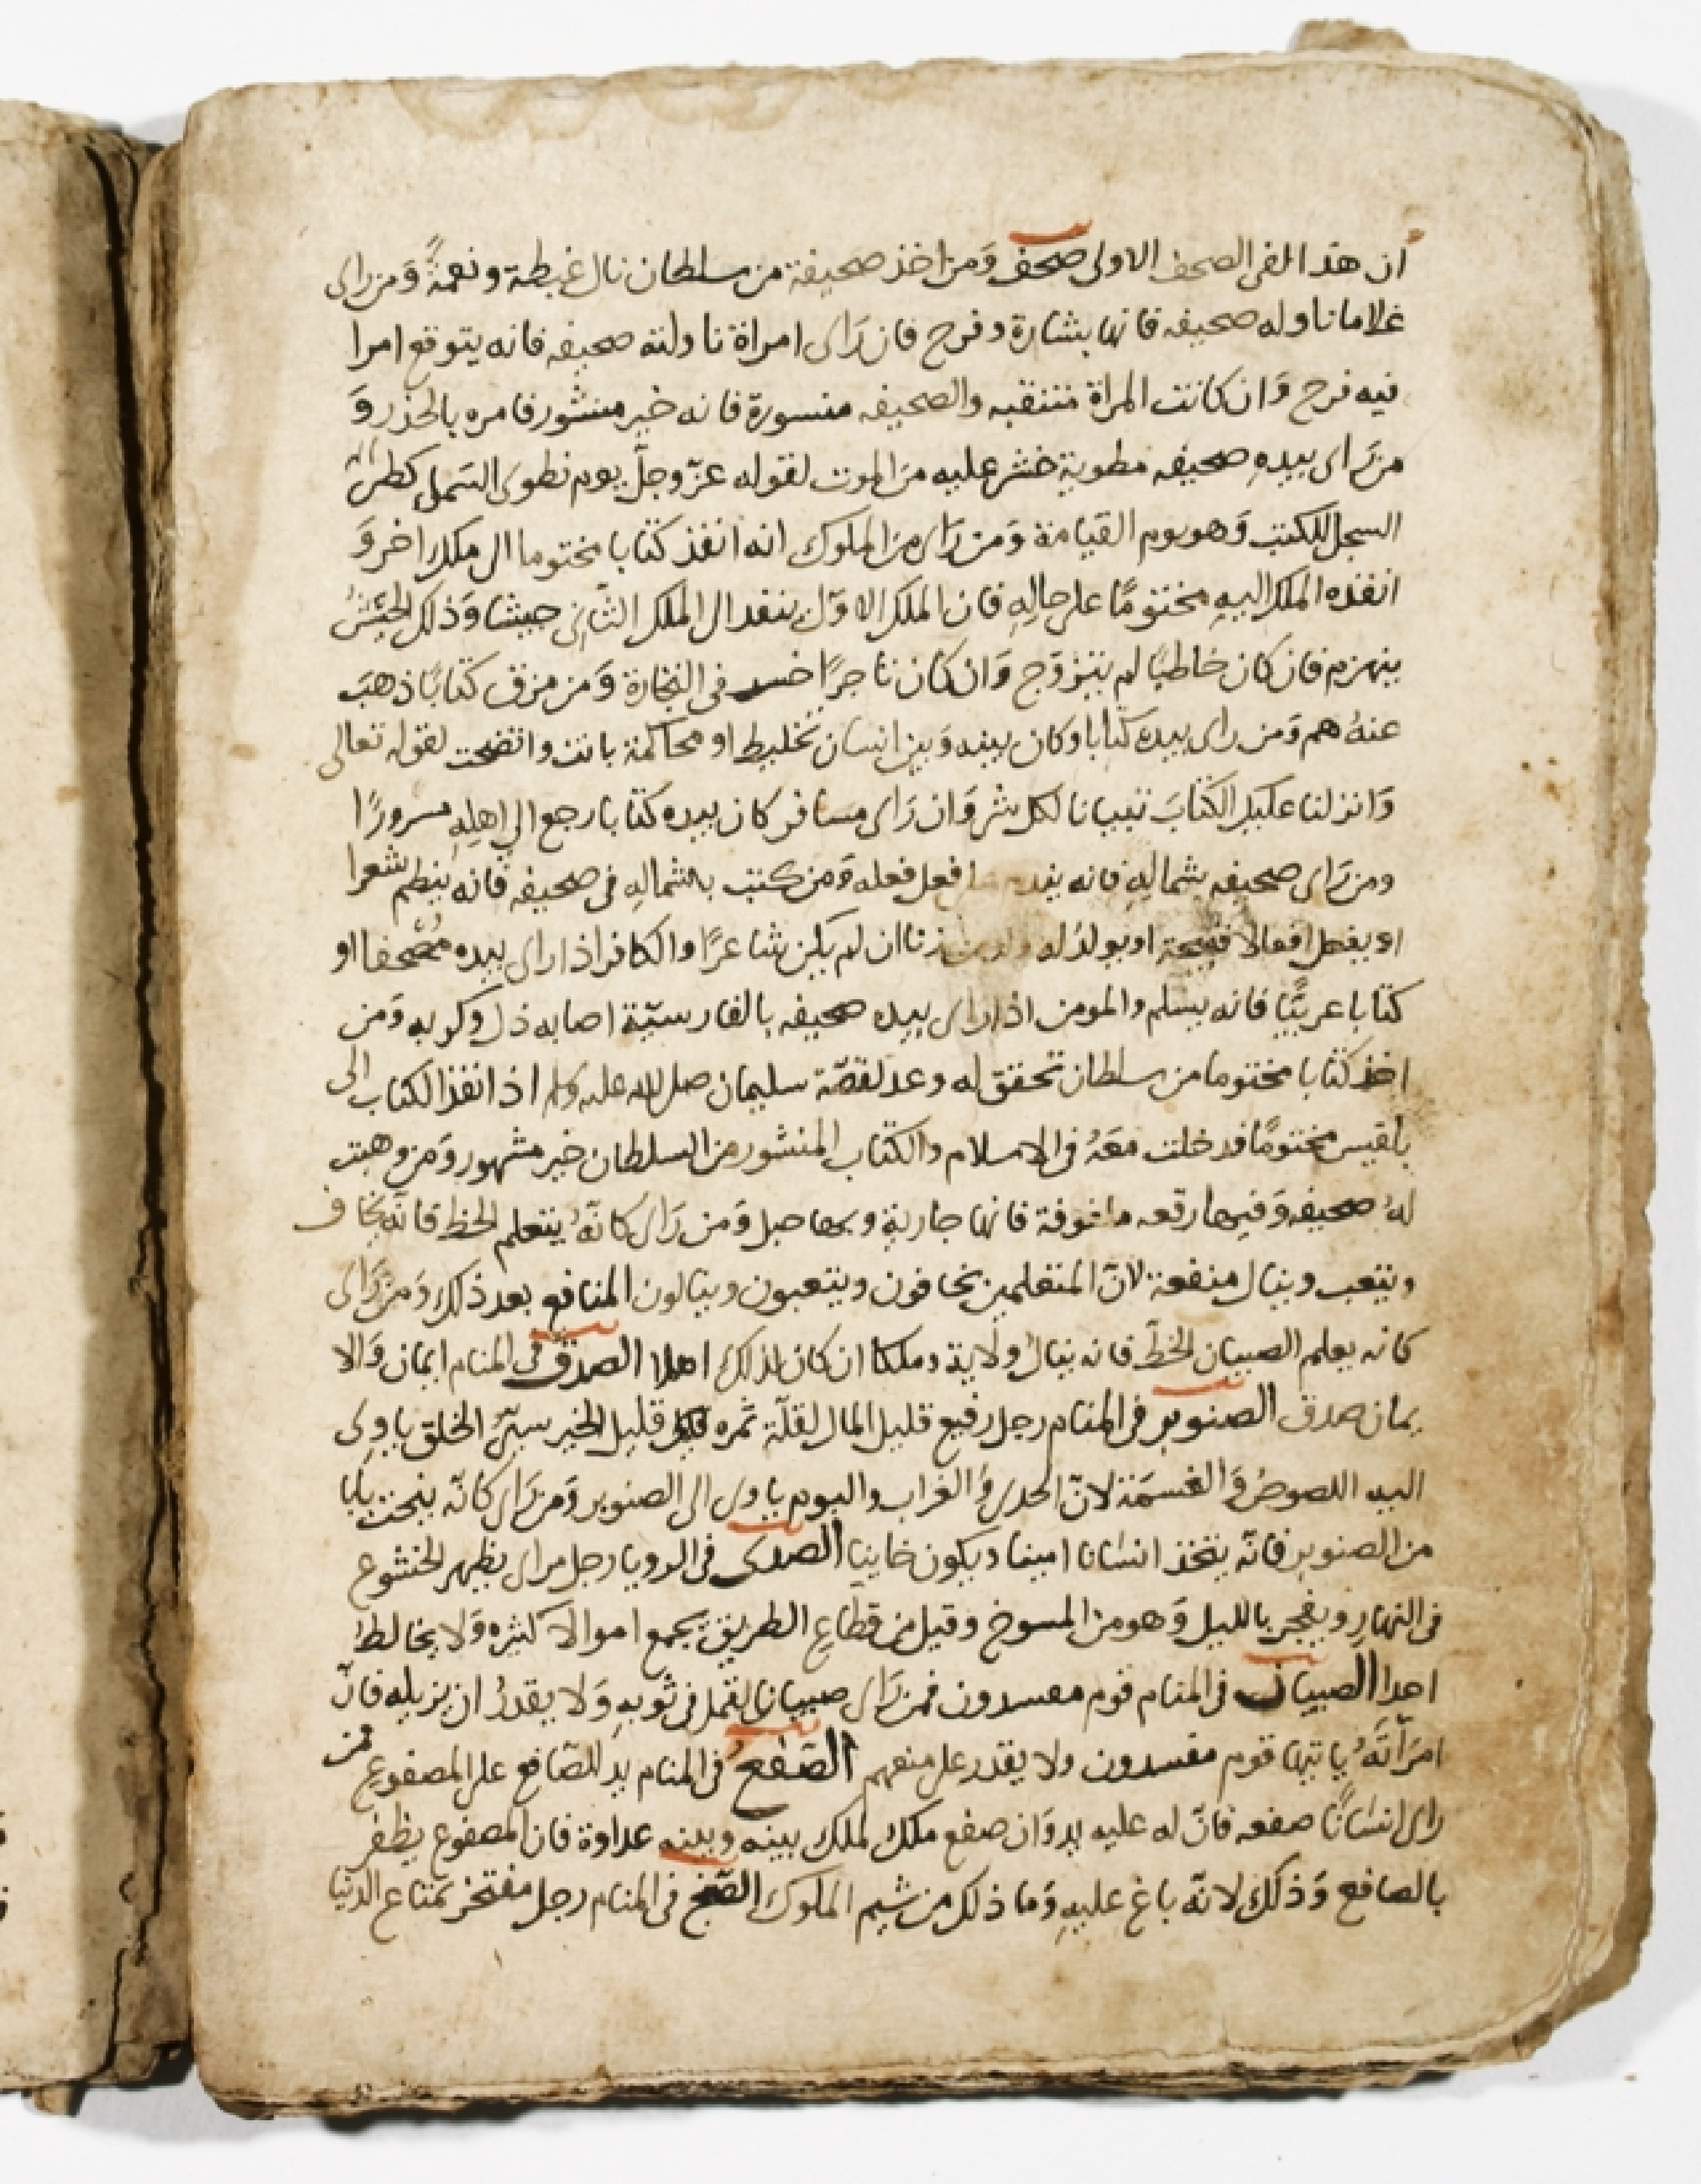 ان هذا لفى الصحف الاولى صحف وَمن اخذ صحيفة من سلطان نال غبطة ونعمةً وَمن راى
غلاما ناوله صحيفه فانها بشارة وفرح فان رَاى امراة ناولته صحيفه فانه يتوقع امرا
فيه فرح وَان كانت المراة متنقبه والصحيفه منسورة فانه خبر منشور فامره بالحذر وَ
من رَاى بيده صحيفه مطوية خشى عليه من الموت لقوله عزّ وجلّ يوم نطوى السما كطى
السجل للكتب وَهو يوم القيامة وَمن رَاى من الملوك انه انفذ كتابا مختوما الى ملك اخر وَ
انفذه الملك اليهِ مختومًا على حالِهِ فان الملك الاوّل ينفد الى الملك الثانى جيشا وَذلك الجَيْشُ
ينهزم فان كان خاطبًا لم يتزوّج وَان كان تاجرًا خسر فى التجارة وَمن مزق كتابًا ذهبَ
عنهُ هم وَمن راى بيده كتابا وكان بينه وَبين انسان تخليط او محاكمة بانت واتضحت لقوله تعالى
وَانزلنا عليك الكتابَ تبيانا لكل شى وَان رَاى مسافر كان بيده كتابا رجع الى اهلِهِ مسرورًا
ومن رَاى صحيفه بشمالِهِ فانه يندم على فعل فعله وَمن كتب بالشمالِهِ فى صحيفه فانه ينظم شعرا
او يفعل افعالا قبيحة او يولدُ له ولد من زنا ان لم يكن شاعرًا والكافر اذا راى بيده مُصْحفا او
كتابا عربيًّا فانه يسلم والمومن اذا راى بيده صحيفه بالفارسيّة اصابه ذل وكربه وَمن
اخذ كتابا مختوما من سلطان تحقق له وعد لقصّة سليمان صلى الله عليه وسلم اذ انفذ الكتاب الى
بلقيس مختومًا فدخلت معَهُ فى الاسلام والكتاب المنشور من السلطان خبر مشهور وَمن وهبت
لهُ صحيفه وَفيها رقعه ملفوفة فانها جارية وبها حبل وَمن رَاى كانّهُ يتعلم الخط فانّه يخاف
ويتعب وينال منفعة لانّ المتعلمين يخافون ويتعبون وينالون المنافع بعد ذلك وَمن رَاى
كانه يعلم الصبيان الخطّ فانه ينالُ ولاية وملكا ان كان لذلك اهلا الصدق فى المنام ايمان وَالا
يمان صدق الصنوبر فى المنام رجل رفيع قليل المال لقلّة ثمره قليل الخير سيّئ الخلق ياوى
اليه اللصوصُ وَالغسمَة لانّ الحدى وَالغراب والبوم ياوى الى الصنوبر وَمن رَاى كانّه ينحت بابا
من الصنوبر فانّه يتخذ انسانا امينا ويكون خاينا الصدى فى الرويا رجل مراى يظهر الخشوع
فى النهارِ ويفجر بالليل وَهو من المسوخ وقيل من قطاع الطريق يجمع اموالا كثيره وَلا يخالط
احدا الصيبان فى المنام قوم مفسدون فمن رَاى صيبان القمل فى ثوبهِ وَلا يقدرُ ان يزيله فانّ
امرَاتَهُ ياتيها قوم مفسدون ولا يقدر على منعهم الصّفعُ فى المنام يد للصّافع على المصفوع فمن
راى انسَانًا صفعه فانّ له عليه يد وَان صفع ملك لملك بينه وبينه عداوة فان المصفوع يظفر
بالصافع وَذلك لانّه باغ عليهِ وَما ذلك من شيم الملوك الصّنج فى المنام رجل مفتخر بمتاع الدنيا